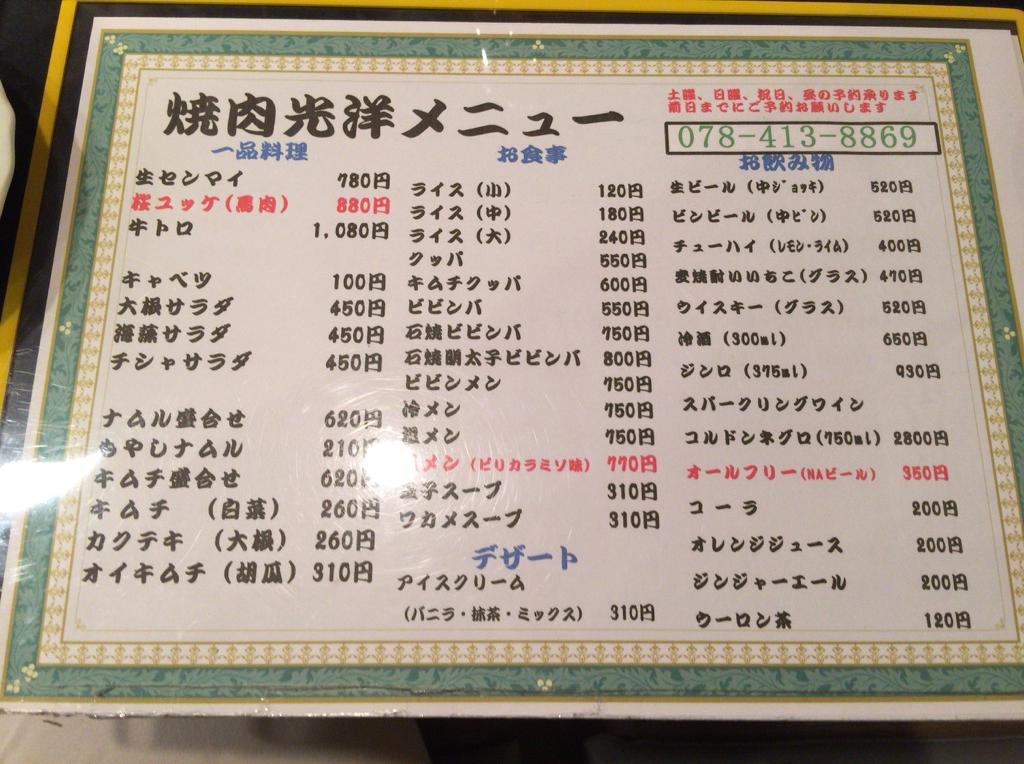 焼肉光洋メニュー
土曜、日曜、祝日、昼の予約承ります
前日までにご予約お願いします
078-413-8869
一品料理
生センマイ 780円
桜ユッケ(馬肉) 880円
牛トロ 1,080円
キャベツ 100円
大根サラダ 450円
海藻サラダ 450円
チシャサラダ 450円
ナムル盛合せ 620円
もやしナムル 210円
キムチ盛合せ 620円
キムチ (白菜) 260円
カクテキ (大根) 260円
オイキムチ (胡瓜) 310円
お食事
ライス (小) 120円
ライス (中) 180円
ライス (大) 240円
クッパ 550円
キムチクッパ 600円
ビビンバ 550円
石焼ビビンバ 750円
石焼明太子ビビンバ 800円
ビビンメン 750円
冷メン 750円
温メン 750円
メン (ピリカラミソ味) 770円
玉子スープ 310円
ワカメスープ 310円
デザート
アイスクリーム
(バニラ・抹茶・ミックス) 310円
お飲み物
生ビール (中ジョッキ) 520円
ビンビール (中ビン) 520円
チューハイ (レモン・ライム) 400円
麦焼酎いいちこ(グラス) 470円
ウイスキー (グラス) 520円
冷酒 (300ml) 650円
ジンロ (375ml) 930円
スパークリングワイン
コルドンネグロ(750ml) 2800円
オールフリー(NAビール) 350円
コーラ 200円
オレンジジュース 200円
ジンジャーエール 200円
ウーロン茶 120円